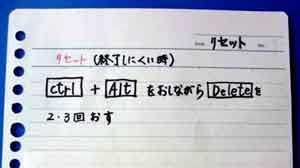 リセット
リセット (終了しにくい時)
ctrl + Alt をおしながら Deleteを
2・3回おす